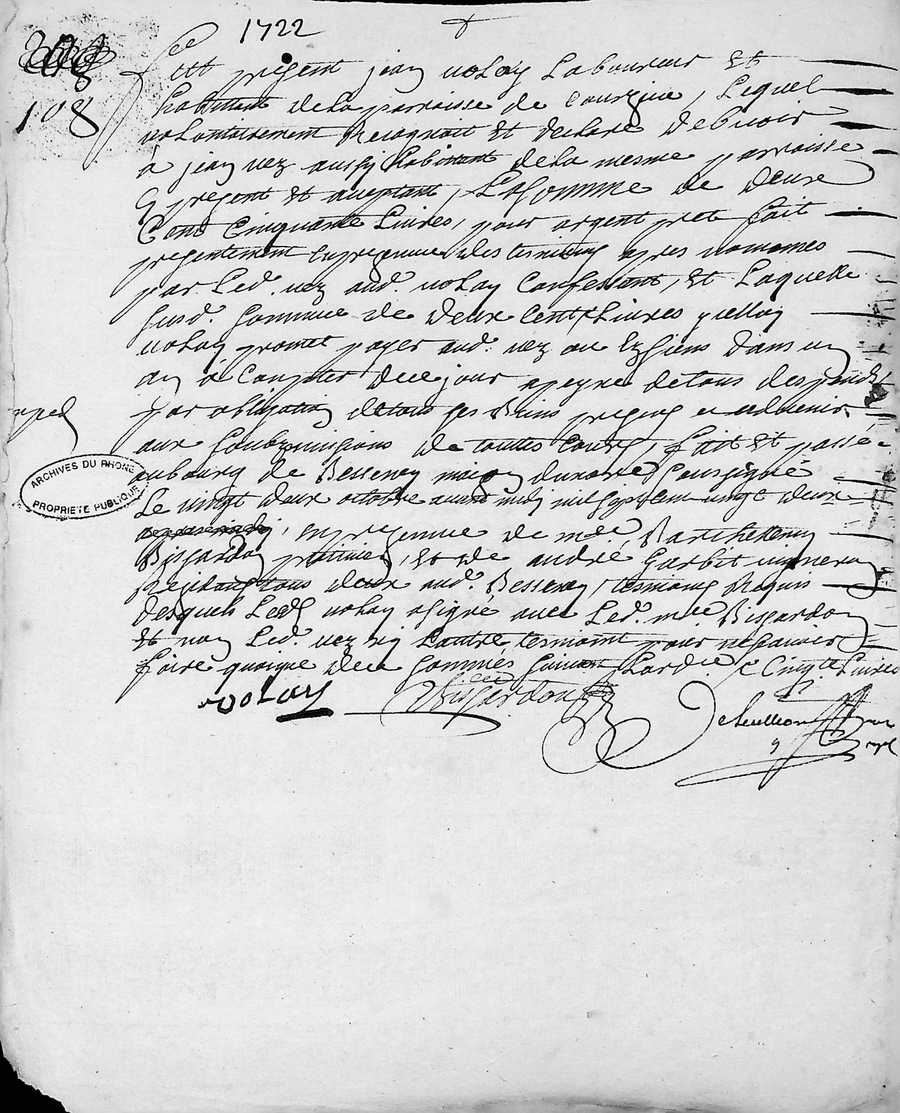 1722
108
fut present jean volay Laboureur Et
habitant de la parroisse de Courzieu, Lequel
volontairement Recognoit Et declare debvoir
à jean vez aussy habitant de la mesme parroisse
present Et aceptant, La Somme de deux
Cent Cinquante Livres, pour argent preté fait
presentement en presence des tesmoins apres només
par Led. vez aud. volay Confessant, Et Laquelle
susd. somme de deux Cent Livres
volay promet payer aud. vez ou Es siens dans un
an à Compter de ce jour a peyne de tous despends
par obligation de tous ses biens presens et advenir
aux soubmissions de touttes Cours, fait Et passé
au bourg de Bessenay maison du notaire soussigné
Le vingt deux octobre avant midy mil sept cent vingt deux
en presence de me. Barthelemy
Bissardon praticien, et de andré
Residants tous deux aud. Bessenay, tesmoins Requis
desquels Led. volay a signé avec Led. me. Bissardon
Et non Led. vez ny L'autre tesmoint pour ne sçavoir
faire quoyque de ce sommés suivant L'ordce. Cinqte Livres
volay Bissardon
ARCHIVES DU RHONE
PROPRIETE PUBLIQUE